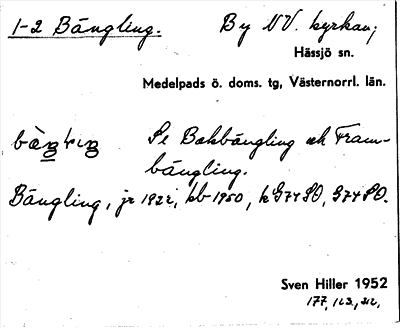 1-2 Bängling. By NV. kyrkan;
Hässjö sn.
Medelpads ö. doms. tg, Västernorrl. län.
Se Bakbängling och Fram-
bängling.
Bängling, jr 1922, kb 1950, k G74SO, G74SO.
Sven Hiller 1952
177, 123, 312,